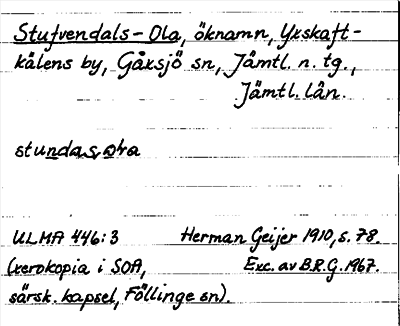 Stufvendals-Ola, öknamn, Yxskaft-
kälens by, Gåxsjö sn, Jämtl. n. tg.,
Jämtl. län.
ULMA 446:3 Herman Geijer 1910, s. 78.
(xerokopia i SOA, Exc. av B.R.G. 1967.
särsk. kapsel, Föllinge sn).